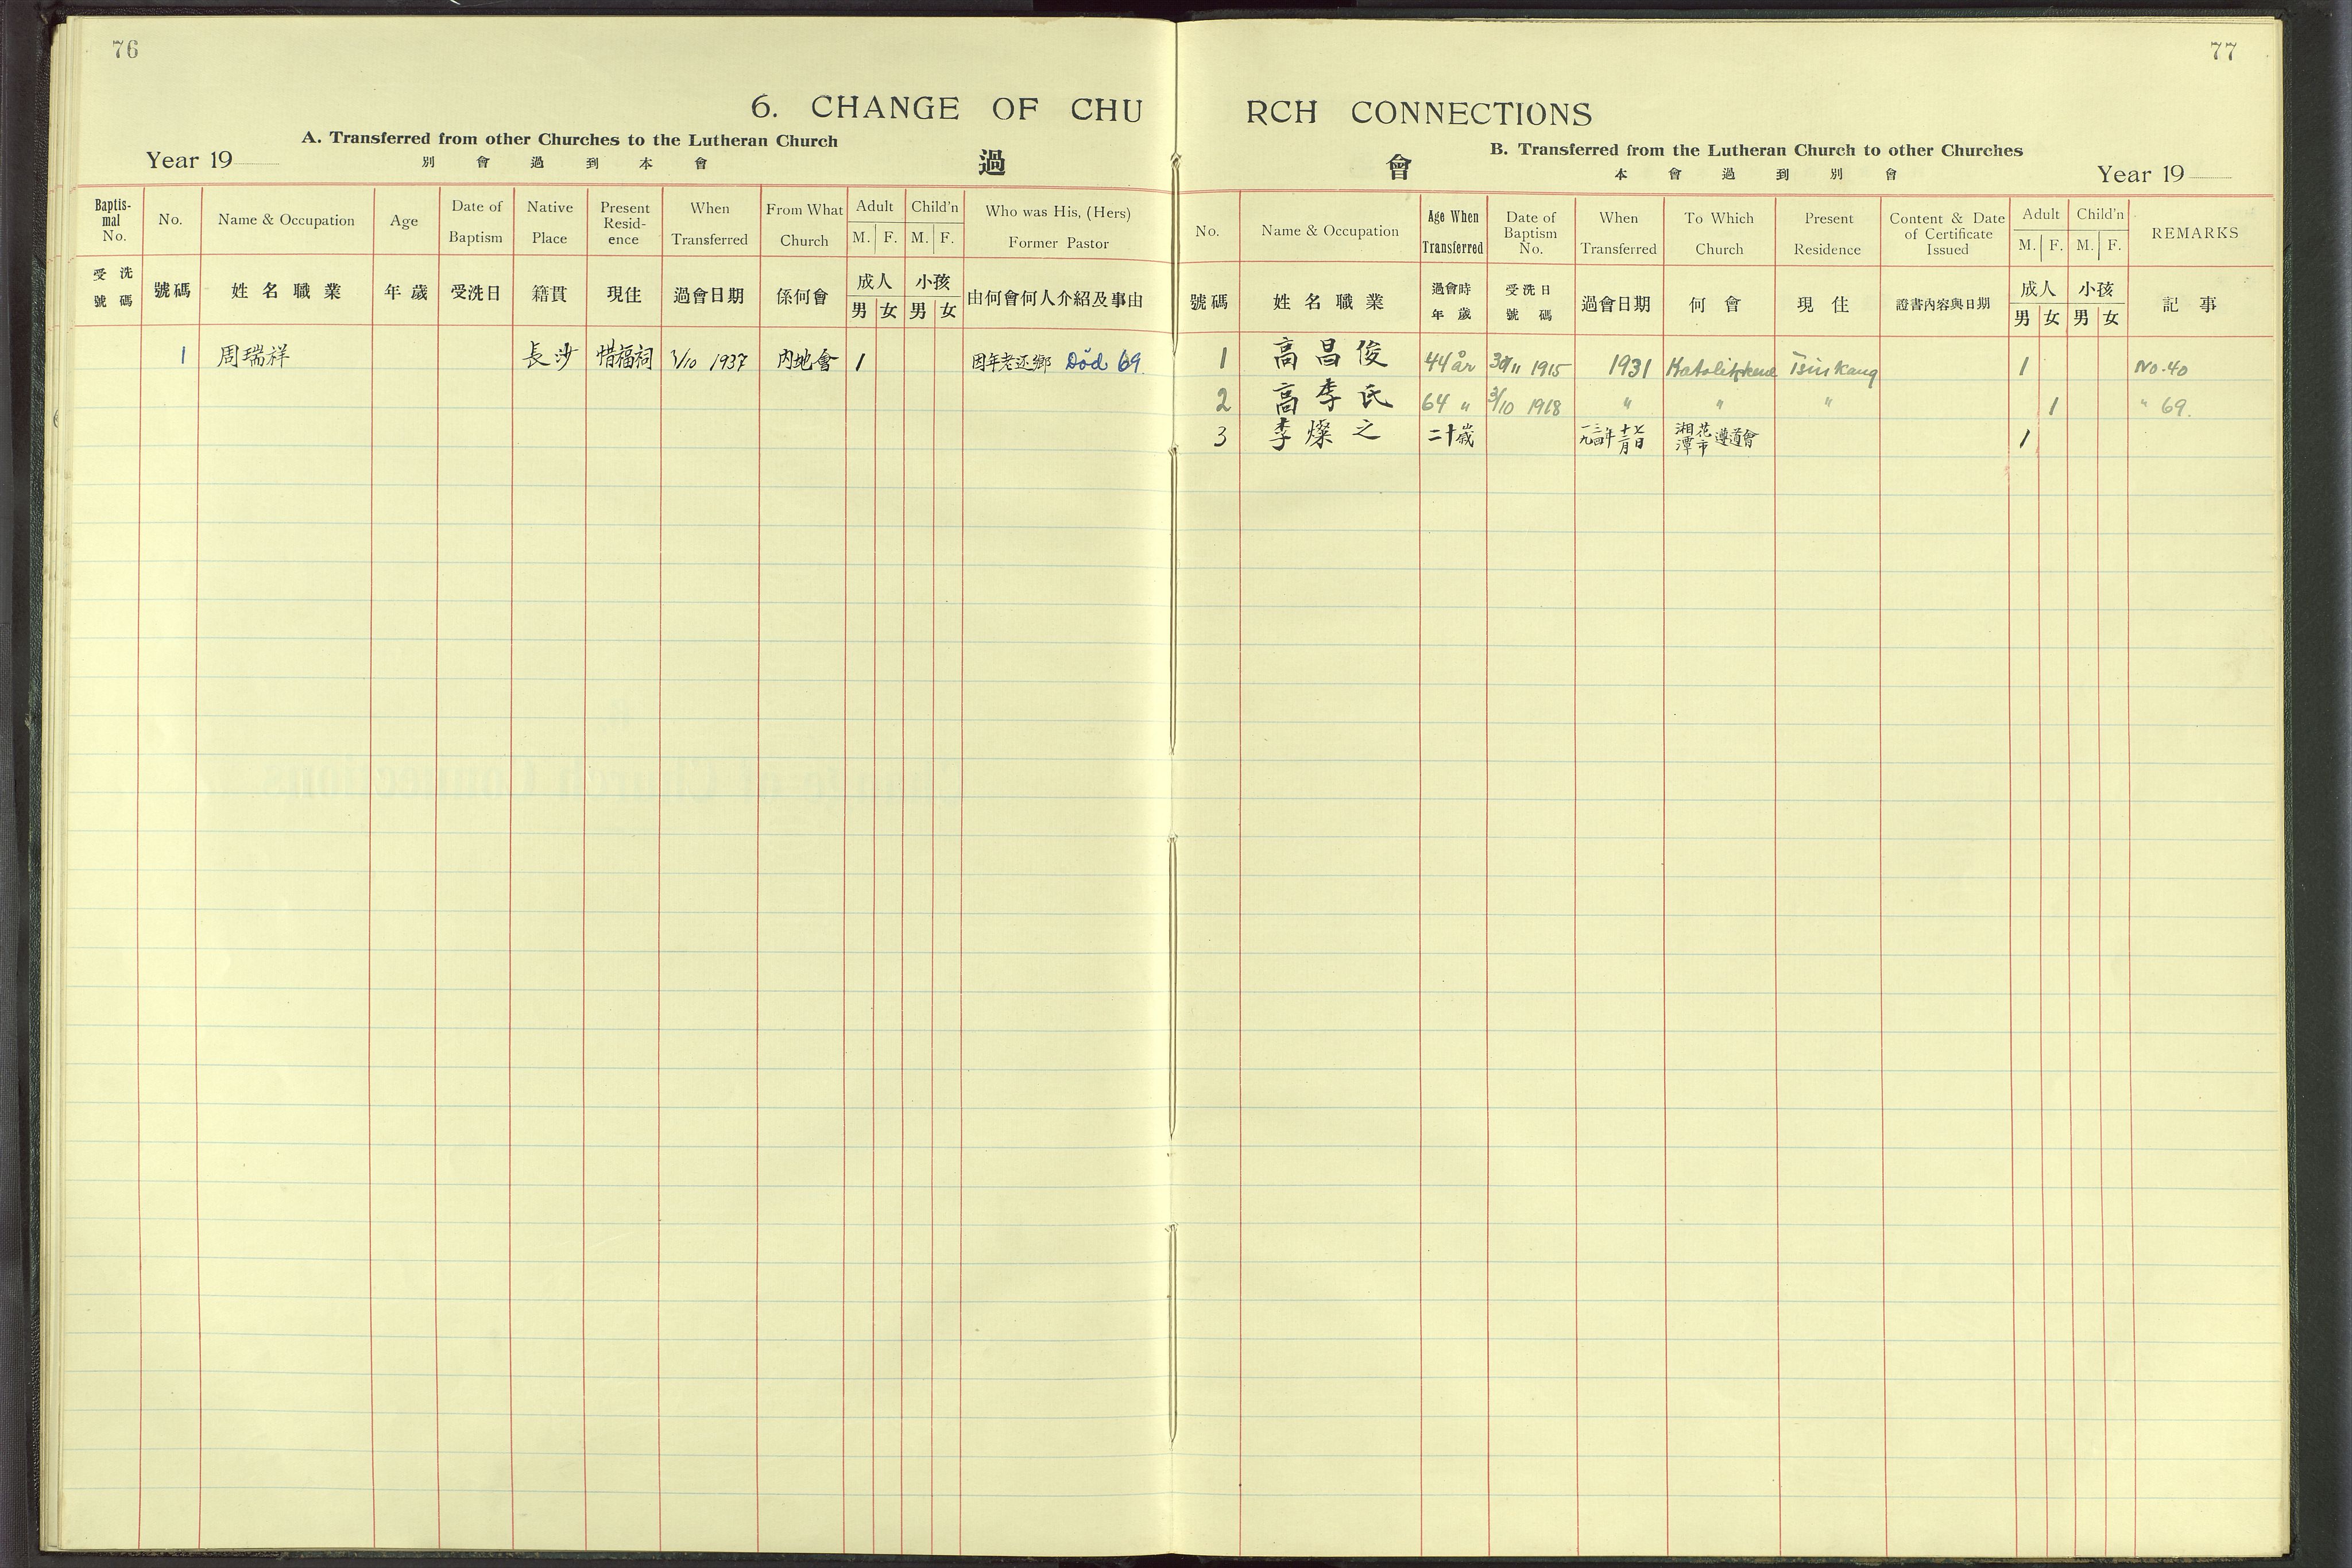 76
6. CHANGE OF CHU
A. Transferred from other Churches to the Lutheran Church
Year 19
別會過到本會
過
Baptismal No. No. Name & Occupation Age Date of Baptism Native Place Present Residence When Transferred From What Church Adult M. F. Child'n M. F. Who was His, (Hers) Former Pastor
受洗號碼 號碼 姓名職業 年歲 受洗日 籍貫 現住 過會日期 係何會 成人 男 女 小孩 男 女 由何會何人介紹及事由
1 周瑞祥 長沙 惜福祠 1/10 1937 內地會 1 因年老还鄉 Död 69.
77
RCH CONNECTIONS
B. Transferred from the Lutheran Church to other Churches
會
本會過到別會
Year 19
No. Name & Occupation Age When Transferred Date of Baptism No. When Transferred To Which Church Present Residence Content & Date of Certificate Issued Adult M. F. Child'n M. F. REMARKS
號碼 姓名職業 過會時年歲 受洗日號碼 過會日期 何會 現住 證書內容與日期 成人 男 女 小孩 男 女 記事
1 高昌俊 44 år 30/11 1915 1931 Tsin kang 1 No. 40
2 高李氏 64 " 3/10 1918 " " " 1 " 69.
3 李燦之 二十歲 湘潭花市遵道會 1